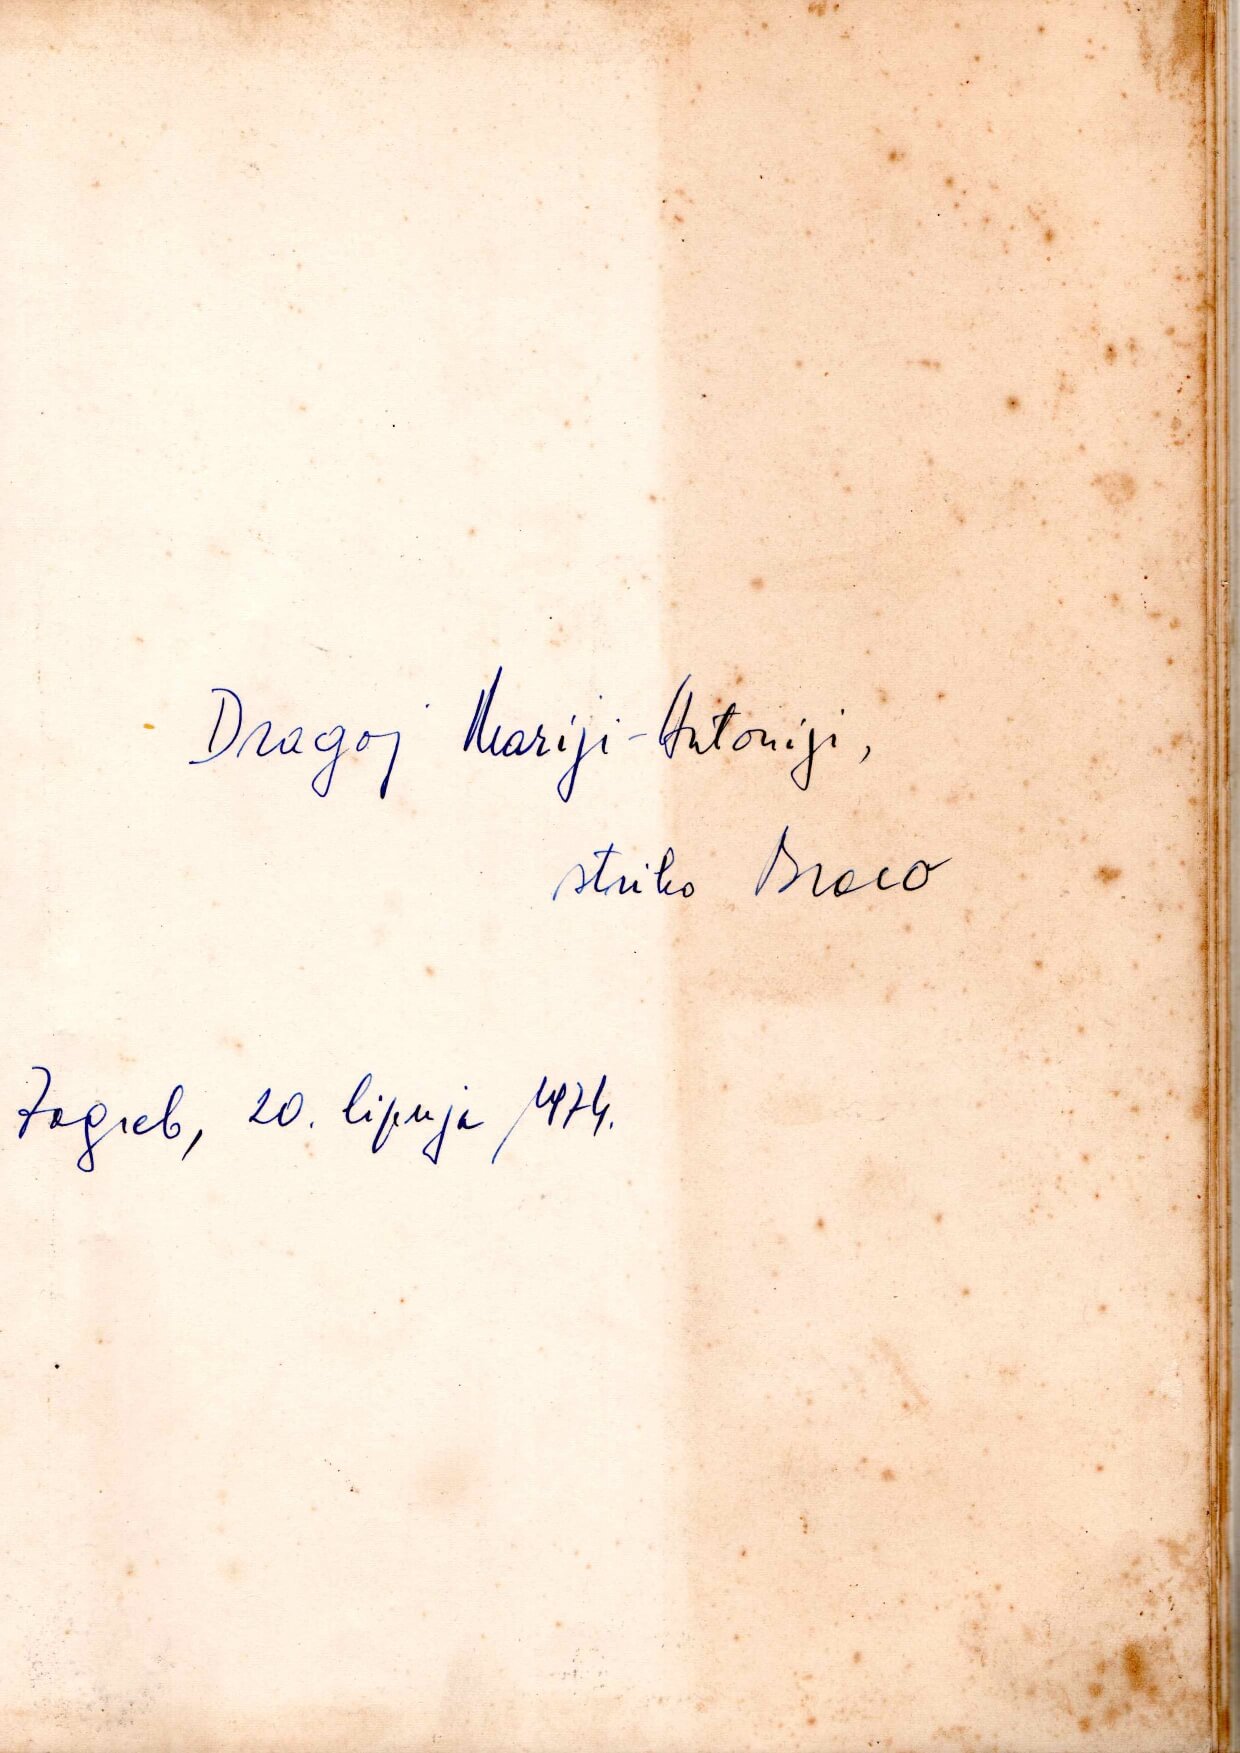 Dragoj Mariji-Antoniji,
striko Braco
Zagreb, 20. lipnja 1974.